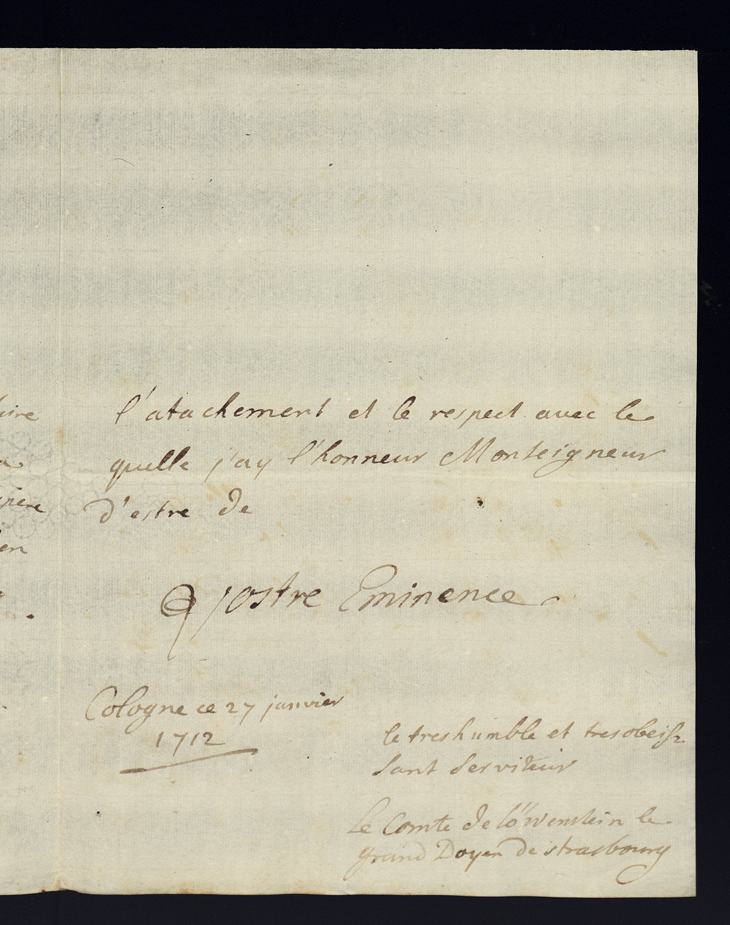 l'atachement et le respect avec le
quelle j'ay l'honneur Monseigneur
d'estre de
Vostre Eminence
Cologne ce 27 janvier
1712
le treshumble et tresobeis=
sant serviteur
le Comte de löwenstein le
grand Doyen de strasbourg